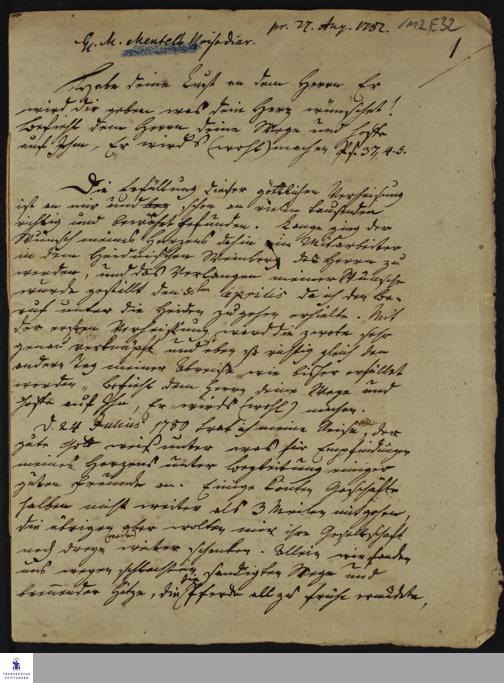 pr. 27. Aug. 1782.
1M2E32
1
H. M. Mentels Reisediar.
Habe deine Lust an dem Herrn Er
wird dir geben was dein Herz wünschet!
Befiehl dem Herrn deine Wege und hoffe
auf Ihn, Er wird's (wohl) machen Ps. 37, 4. 5.
Die Erfüllung dieser göttlichen Verheißung
ist an mir und schon an vielen tausenden
richtig und bewährt gefunden. Lange ging der
Wunsch meines Herzens dahin ein Mitarbeiter
in dem Heidnischen Weinberg des Herrn zu
werden, und das Verlangen meiner Wünsche
wurde gestillt den Aprilis da ich den Be-
ruf unter die Heiden zu gehen erhielte. Mit
der ersten Verheißung ward die zweite sehr
genau verknüpft und eben so richtig gleich den
andern Tag meiner Abreise wie bisher erfüllet
worden, Befiehl dem Herrn deine Wege und
hoffe auf Ihn, Er wirds (wohl) machen.
D. 24 Julius 1780 trat ich meine Reise, der
gute Gott weiß unter was für Empfindungen
meines Herzens unter Begleitung einiger
guten Freunde an. Einige konten Geschäfte
halben nicht weiter als 3 Meilen mitgehen,
die übrigen aber wolten mir ihre Gesellschaft
noch weiter schenken. Allein wir fanden
uns wegen sandigten Wege und
brennender Hitze, die Pferde all zu frühe ermüdete,
FRANCKESCHE
STIFTUNGEN